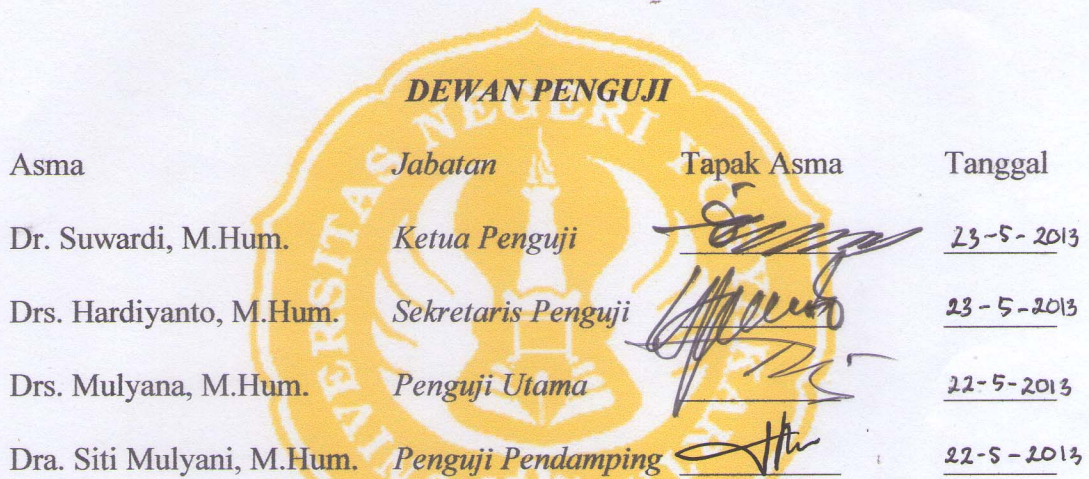 DEWAN PENGUJI
Asma Jabatan Tapak Asma Tanggal
Dr. Suwardi, M.Hum. Ketua Penguji 23-5-2013
Drs. Hardiyanto, M.Hum. Sekretaris Penguji 23-5-2013
Drs. Mulyana, M.Hum. Penguji Utama 22-5-2013
Dra. Siti Mulyani, M.Hum. Penguji Pendamping 22-5-2013
UNIVERSITAS NEGERI